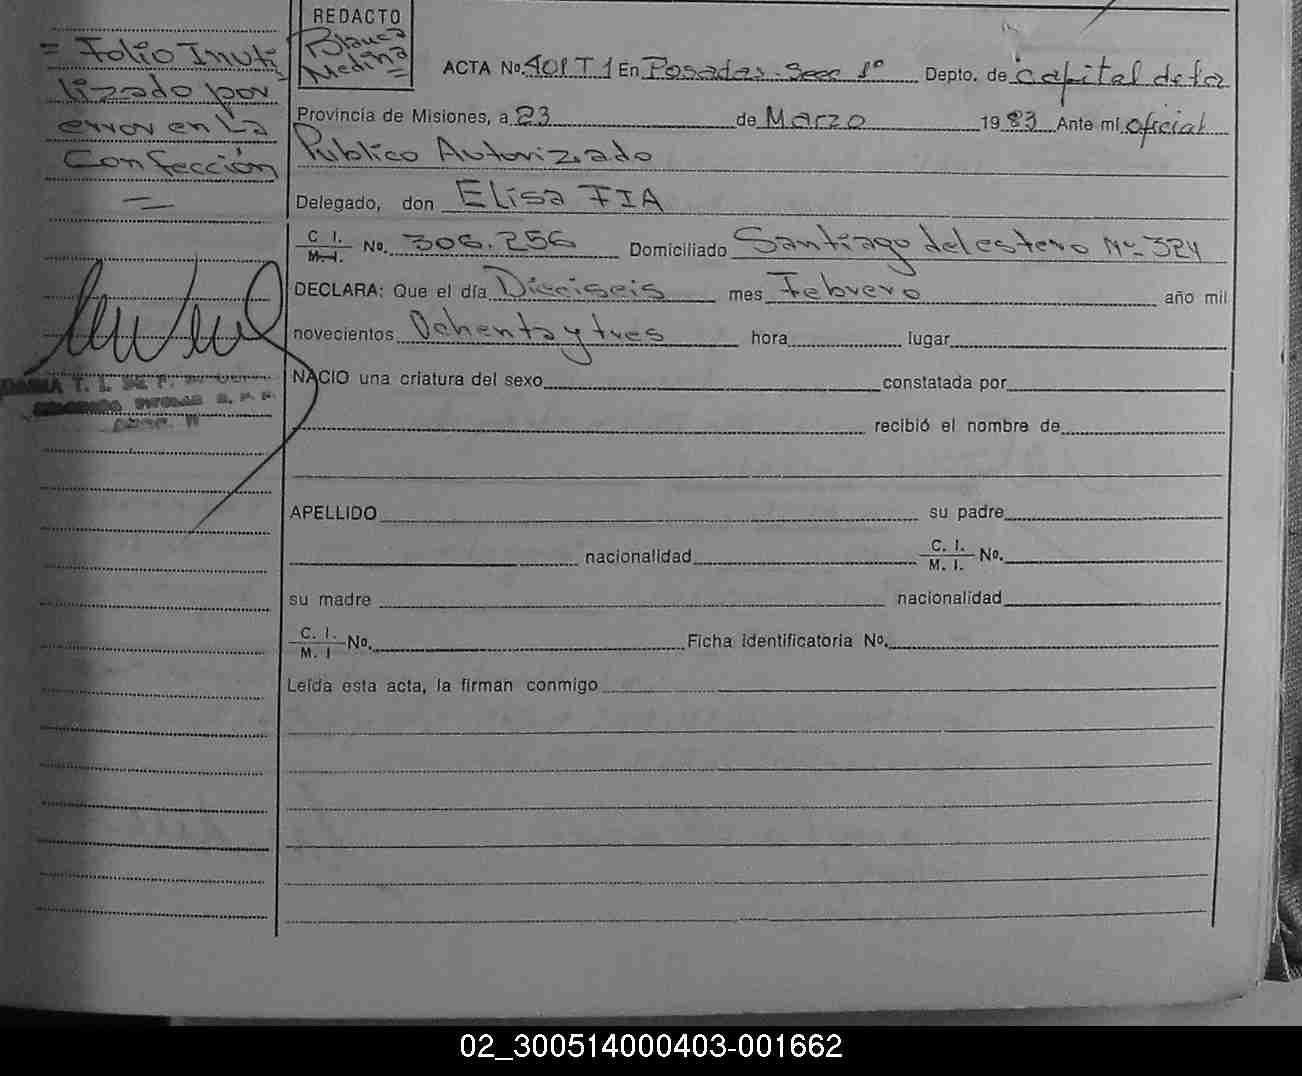 = Folio Inuti
lizado por
error en La
Confección
=
REDACTO
Blanca
Medina
=
ACTA No. 401 T 1 En Posadas. Secc 1° Depto. de Capital de la
Provincia de Misiones, a 23 de Marzo 1983 Ante mi oficial
Publico Autorizado
Delegado, don Elisa FIA
C. I.
M. I. No. 306.256 Domiciliado Santiago del estero N° 324
DECLARA: Que el día Dieciseis mes Febrero año mil
novecientos Ochenta y tres hora lugar
NACIO una criatura del sexo constatada por
recibió el nombre de
APELLIDO su padre
nacionalidad C. I.
M. I. No.
su madre nacionalidad
C. I.
M. I No. Ficha identificatoria No.
Leída esta acta, la firman conmigo
02_300514000403-001662